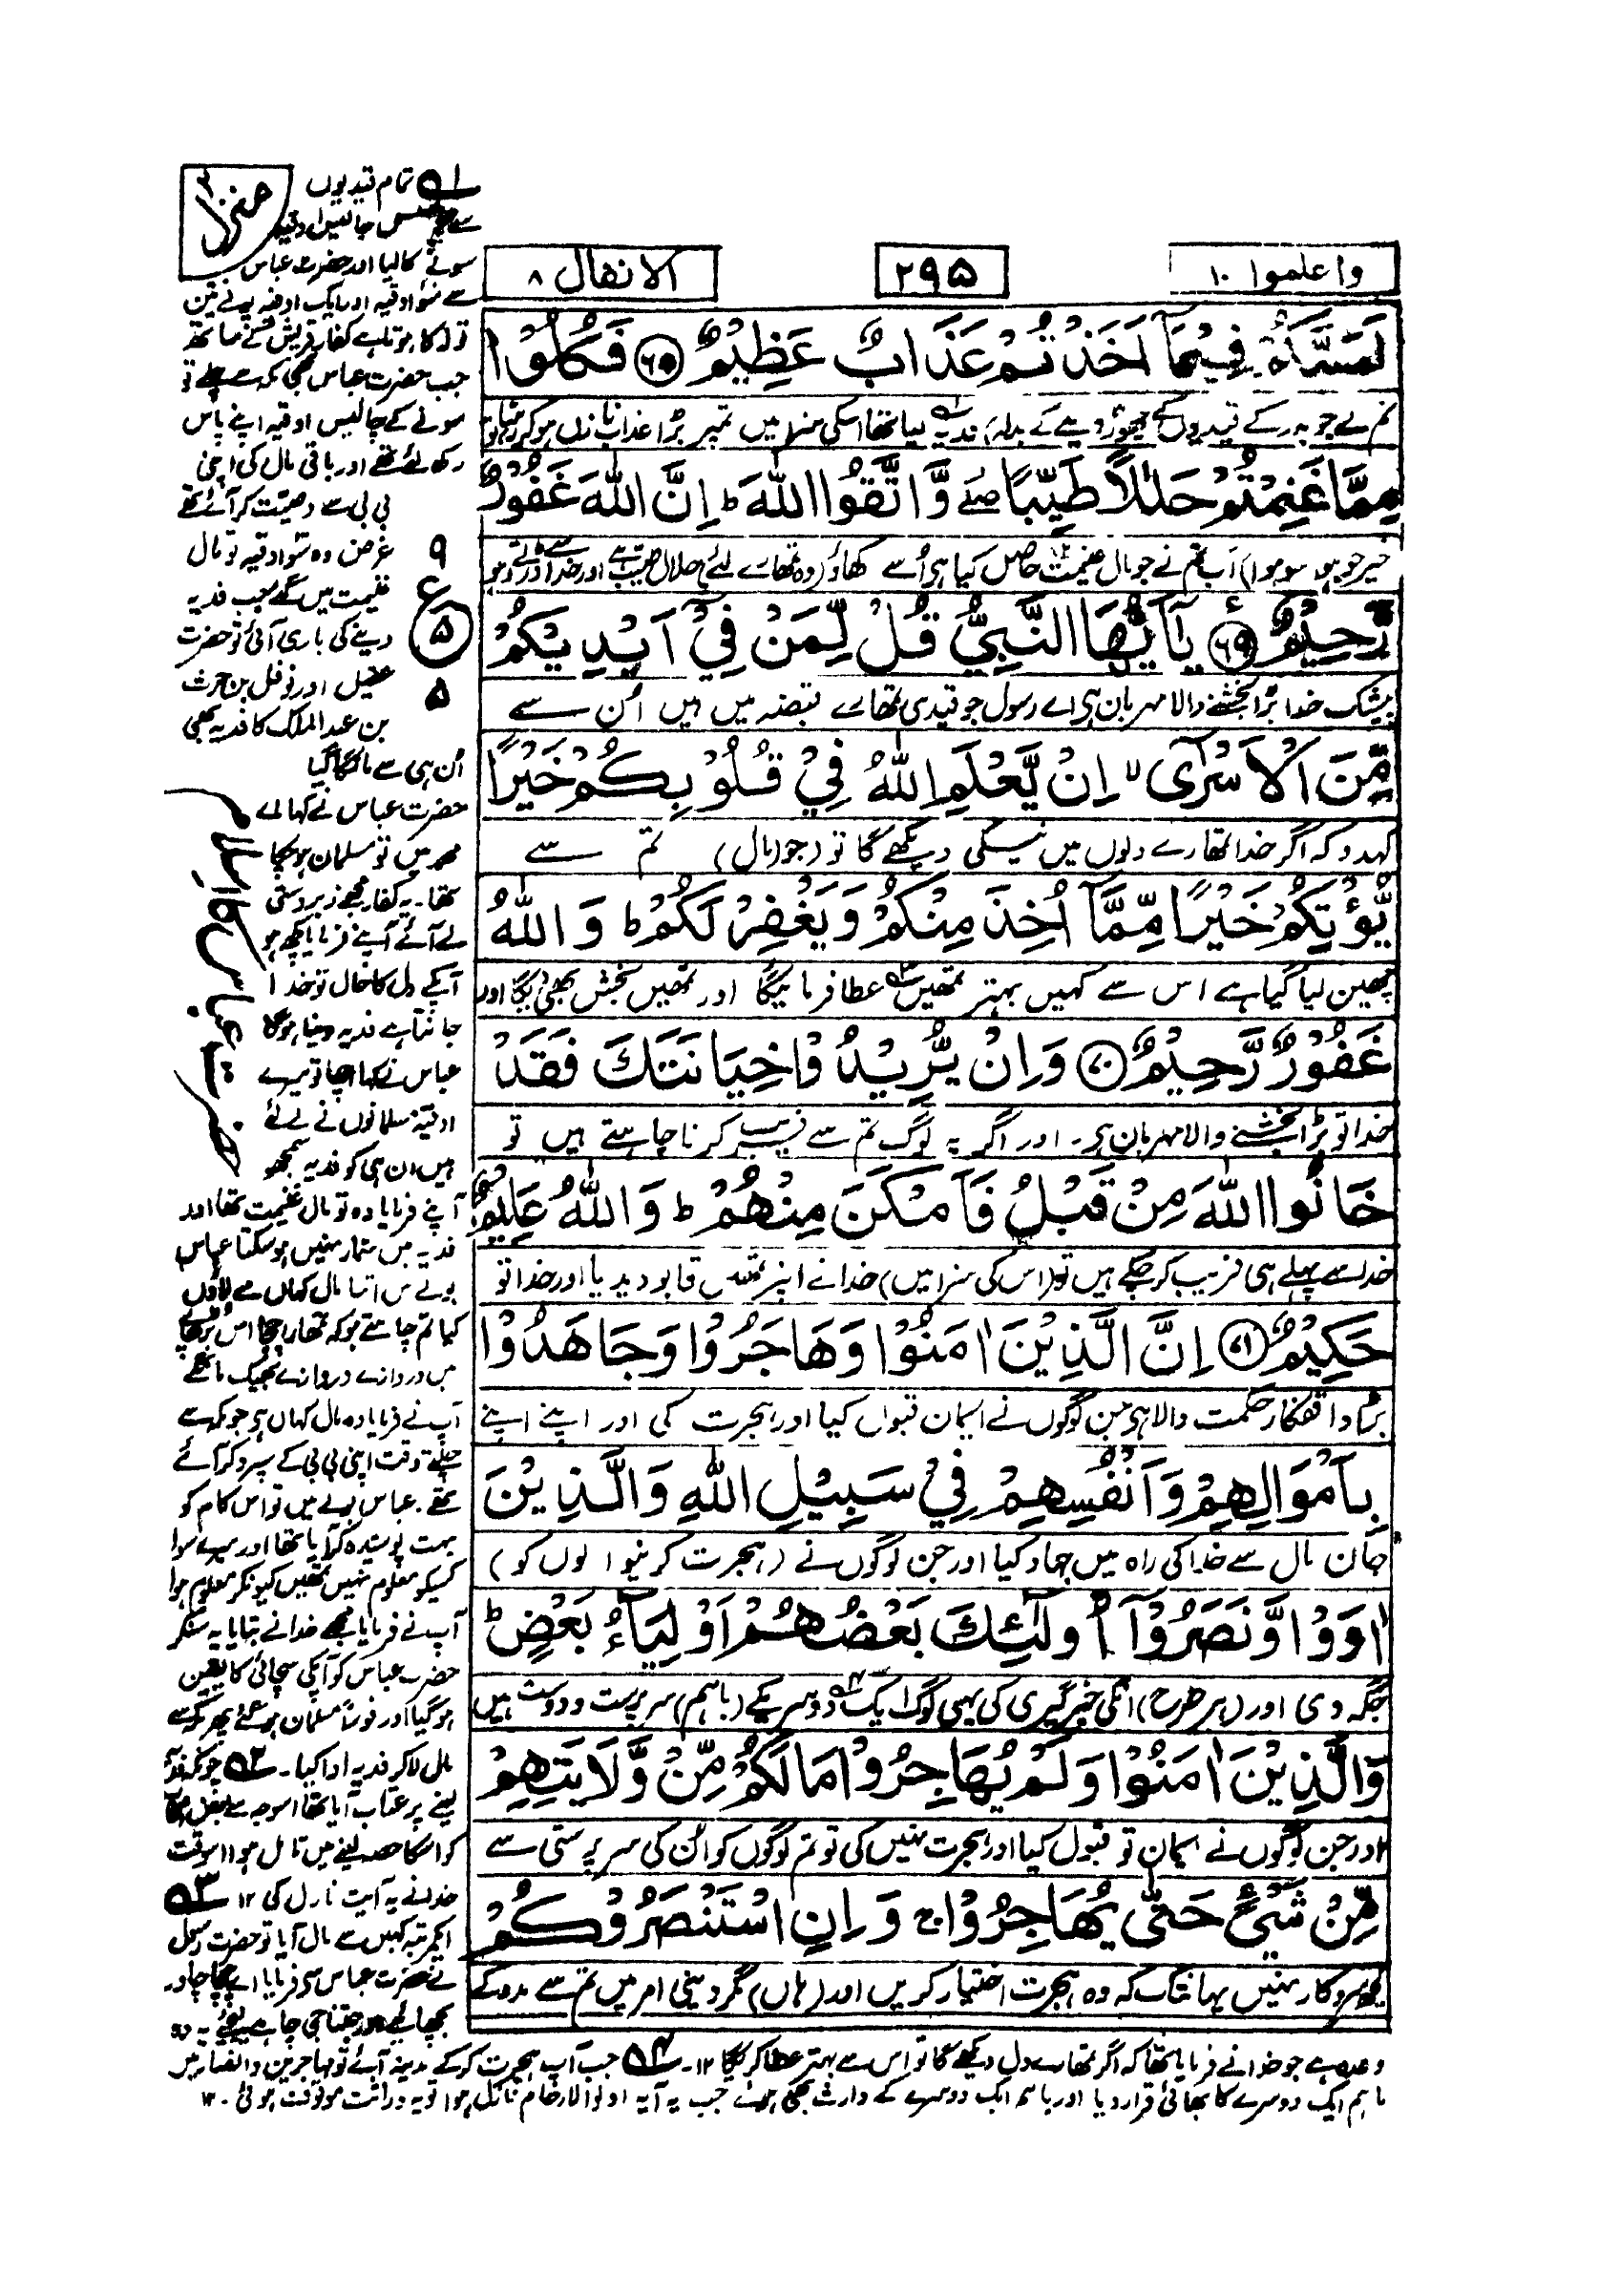 واعلموا ۱۰
۲۹۵
الانفال ۸
لَمَسَّكُمْ فِيْمَآ اَخَذْتُمْ عَذَابٌ عَظِيْمٌ ۶۸ فَكُلُوْا
تم نے جو بدر کے قیدیوں کے چھوڑ دینے کے بدلہ فدیہ لیا تھا اسکی سزا میں تمپر بڑا عذاب نازل ہو کر رہتا
مِمَّا غَنِمْتُمْ حَلٰلًا طَيِّبًا صلے وَّاتَّقُوا اللّٰهَ ط اِنَّ اللّٰهَ غَفُوْرٌ
خیر جو ہوا سو ہوا) اب تم نے جو مال غنیمت حاصل کیا ہی اُسے کھاؤ (وہ تمھارے لئے) حلال طیب ہے اور خدا سے ڈرتے رہو
رَّحِيْمٌ ۶۹ يٰٓاَيُّهَا النَّبِيُّ قُلْ لِّمَنْ فِيْٓ اَيْدِيْكُمْ
بیشک خدا بڑا بخشنے والا مہربان ہی اے رسول جو قیدی تمھارے قبضہ میں ہیں اُن سے
مِّنَ الْاَسْرٰٓى لا اِنْ يَّعْلَمِ اللّٰهُ فِيْ قُلُوْبِكُمْ خَيْرًا
کہدو کہ اگر خدا تمھارے دلوں میں نیکی دیکھے گا تو (جو مال) تم سے
يُّؤْتِكُمْ خَيْرًا مِّمَّآ اُخِذَ مِنْكُمْ وَيَغْفِرْ لَكُمْ ط وَاللّٰهُ
چھین لیا گیا ہے اس سے کہیں بہتر تمھیں عطا فرمائیگا اور تمھیں بخش بھی دیگا اور
غَفُوْرٌ رَّحِيْمٌ ۷۰ وَاِنْ يُّرِيْدُوْا خِيَانَتَكَ فَقَدْ
خدا تو بڑا بخشنے والا مہربان ہی۔ اور اگر یہ لوگ تم سے فریب کرنا چاہتے ہیں تو
خَانُوا اللّٰهَ مِنْ قَبْلُ فَاَمْكَنَ مِنْهُمْ ط وَاللّٰهُ عَلِيْمٌ
خدا سے پہلے ہی فریب کر چکے ہیں تو (اس کی سزا میں) خدا نے اُنپر تمھیں قابو دیدیا اور خدا تو
حَكِيْمٌ ۷۱ اِنَّ الَّذِيْنَ اٰمَنُوْا وَهَاجَرُوْا وَجَاهَدُوْا
بڑا واقفکار حکمت والا ہی جن لوگوں نے ایمان قبول کیا اور ہجرت کی اور اپنے اپنے
بِاَمْوَالِهِمْ وَاَنْفُسِهِمْ فِيْ سَبِيْلِ اللّٰهِ وَالَّذِيْنَ
جان مال سے خدا کی راہ میں جہاد کیا اور جن لوگوں نے (ہجرت کرنیوالوں کو)
اٰوَوْا وَّنَصَرُوْٓا اُولٰٓئِكَ بَعْضُهُمْ اَوْلِيَآءُ بَعْضٍ ط
جگہ دی اور (ہر طرح) انکی خبر گیری کی یہی لوگ ایک دوسرے کے (باہم) سرپرست و دوست ہیں
وَالَّذِيْنَ اٰمَنُوْا وَلَمْ يُهَاجِرُوْا مَالَكُمْ مِّنْ وَّلَايَتِهِمْ
اور جن لوگوں نے ایمان تو قبول کیا اور ہجرت نہیں کی تو تم لوگوں کو اُن کی سرپرستی سے
مِّنْ شَيْءٍ حَتّٰى يُهَاجِرُوْا ج وَاِنِ اسْتَنْصَرُوْكُمْ
کچھ سروکار نہیں یہانتک کہ وہ ہجرت اختیار کریں اور (ہاں) مگر دینی امر میں تم سے مدد کے
منزل ۲
۵۱ تمام قیدیوں
سے چالیس اوقیہ
سونے کا لیا اور حضرت عباس
سے سَو اوقیہ اور ایک اوقیہ پونے تین
تولہ کا ہوتا ہے کفار قریش کے ساتھ
جب حضرت عباس بھی مکہ سے چلے تو
سونے کے چالیس اوقیہ اپنے پاس
رکھ لئے تھے اور باقی مال کی اپنی
بی بی سے وصیّت کر آئے تھے
غرض وہ سَو اوقیہ تو مال
غنیمت میں گئے جب فدیہ
دینے کی باری آئی تو حضرت
عقیل اور نوفل بن حرث
بن عبد الملک کا فدیہ بھی
اُن ہی سے مانگا گیا
حضرت عباس نے کہا اے
محمد میں تو مسلمان ہو چکا
تھا۔ یہ کفار مجھے زبردستی
لے آئے آپنے فرمایا
آپکے دل کا حال تو خدا
جانتا ہے فدیہ دینا ہوگا
عباس نے کہا اچھا تو میرے
اوقیہ مسلمانوں نے لے لئے
ہیں ان ہی کو فدیہ سمجھو
آپنے فرمایا وہ تو مال غنیمت تھا اور
فدیہ میں شمار نہیں ہو سکتا عباس
بولے میں اتنا مال کہاں سے لاؤں
کیا تم چاہتے ہو کہ تمھارا چچا اس
میں دروازے دروازے بھیک مانگے
آپ نے فرمایا وہ مال کہاں ہی جو مکہ سے
چلتے وقت اپنی بی بی کے سپرد کر آئے
تھے۔ عباس بولے میں تو اس کام کو
بہت پوشیدہ کر آیا تھا اور میرے سوا
کسیکو معلوم نہیں تمھیں کیونکر معلوم ہوا
آپ نے فرمایا مجھے خدا نے بتایا یہ سنکر
حضرت عباس کو آپکی سچائی کا یقین
ہو گیا اور فوراً مسلمان ہو گئے پھر مکہ سے
مال لا کر فدیہ ادا کیا۔ ۵۲ چونکہ فدیہ
لینے پر عتاب آیا تھا اسوجہ سے بعض
کو اسکا حصہ لینے میں تامل ہوا اسوقت
خدا نے یہ آیت نازل کی ۱۲ ۵۳
ایکمرتبہ کہیں سے مال آیا تو حضرت رسول
نے حضرت عباس سے فرمایا اے چچا چادر
بچھائیے اور جتنا جی چاہے لیجئے یہ وہ
وعدہ ہے جو خدا نے فرمایا تھا کہ اگر تمھارے دل دیکھے گا تو اس سے بہتر عطا کریگا ۱۲۔ ۵۴ جب آپ ہجرت کرکے مدینہ آئے تو مہاجرین و انصار میں
باہم ایک دوسرے کا بھائی قرار دیا اور باہم ایک دوسرے کے وارث بھی ہوئے جب یہ آیہ اولوالارحام نازل ہوا تو یہ وراثت موقوف ہوئی۔ ۱۲
۹
ع
۵
۵